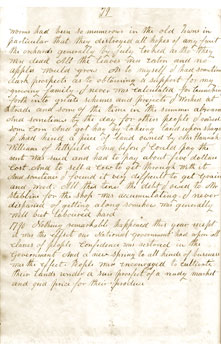 71
worms had been so numerous in the old towns in
particular that they destroyed all hopes of any fruit
the orchards generally by July looked as tho' they
was dead All the leaves was eaten and no
apples would grow As to myself I had sometimes
dark prospects as to obtaining a support for my
growing family I never was calculated for launching
forth into great schemes and projects I worked at the
and some of the time in the summer
And sometimes by the day for other people I owned
some Corn And got hay by taking land upon
I had hired a piece of land owned by Mr
William of Pittsfield And before I could pay the
rent was sued and had to pay about four dollars
Cost And to sell a Cow to get through with it
And sometimes I found it very difficult to get grain
and wood All this time the debt I owed to Mr
Stebbins for the shop was accumulating I never
despaired of getting along somehow was generally
well but laboured hard
1790 Nothing remarkable happened this year except
it was the effect our National government had upon all
Classes of people Confidence was restored in the
Government And a new spring to all kinds of business
was the effect People was encouraged to cultivate
their lands with a sure prospect of a ready market
and good price for their produce